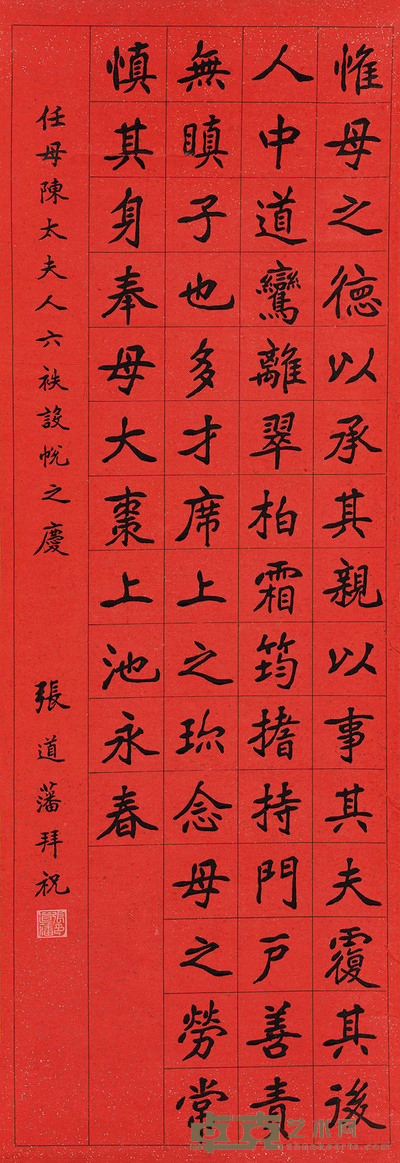 惟母之德以承其親以事其夫覆其後
人中道鸞離翠柏霜筠搘持門戶善責
無瞋子也多才席上之珎念母之勞常
慎其身奉母大棗上池永春
任母陳太夫人六袟設帨之慶
張道藩拜祝
艺术网